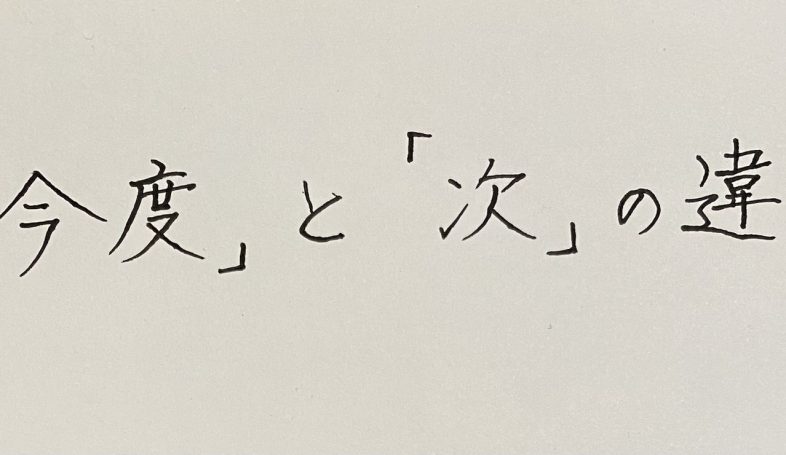 今度」と「次」の違